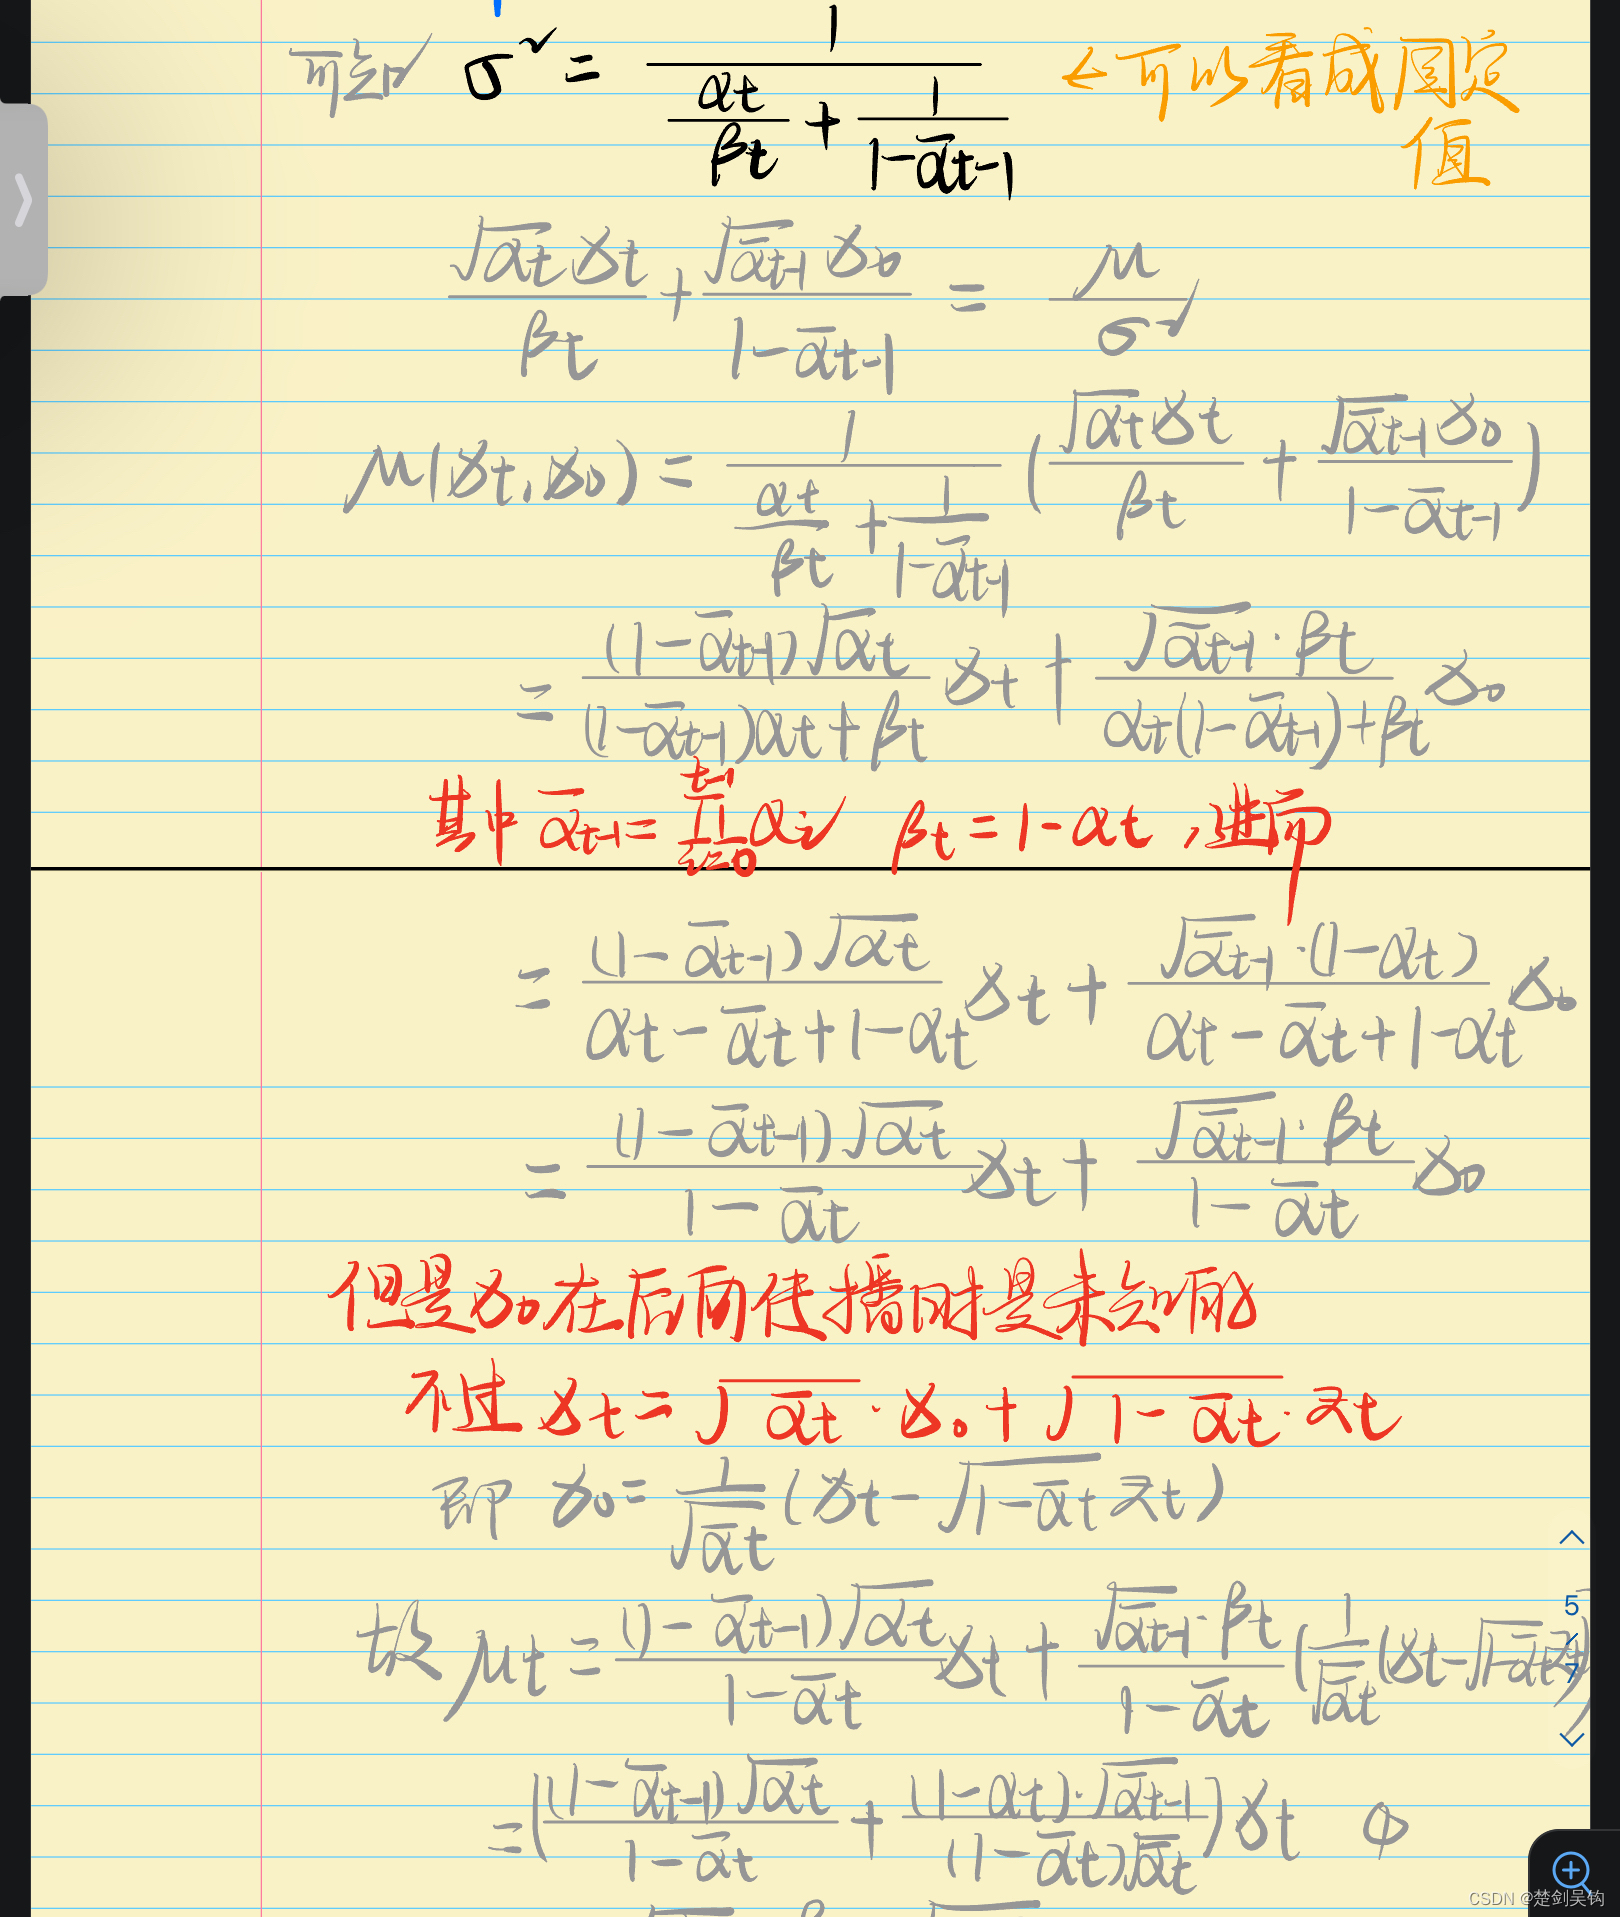 可知 σ² = 1/(αt/βt + 1/(1-ᾱt-1)) ← 可以看成固定
值
√αt xt/βt + √ᾱt-1 x0/(1-ᾱt-1) = μ/σ²
μ(xt, x0) = 1/(αt/βt + 1/(1-ᾱt-1)) (√αt xt/βt + √ᾱt-1 x0/(1-ᾱt-1))
= (1-ᾱt-1)√αt/((1-ᾱt-1)αt+βt) xt + √ᾱt-1·βt/(αt(1-ᾱt-1)+βt) x0
其中 ᾱt-1 = ∏(i=0→t-1) αi βt = 1-αt ,进而
= (1-ᾱt-1)√αt/(αt-ᾱt+1-αt) xt + √ᾱt-1·(1-αt)/(αt-ᾱt+1-αt) x0
= (1-ᾱt-1)√αt/(1-ᾱt) xt + √ᾱt-1·βt/(1-ᾱt) x0
但是x0在后向传播时是未知的
不过 xt = √ᾱt · x0 + √1-ᾱt · zt
即 x0 = 1/√ᾱt (xt - √1-ᾱt zt)
故 μt = (1-ᾱt-1)√αt/(1-ᾱt) xt + √ᾱt-1·βt/(1-ᾱt) (1/√ᾱt (xt-√1-ᾱt zt))
= ((1-ᾱt-1)√αt/(1-ᾱt) + (1-αt)·√ᾱt-1/((1-ᾱt)√ᾱt)) xt
5
/
7
CSDN @楚剑吴钩